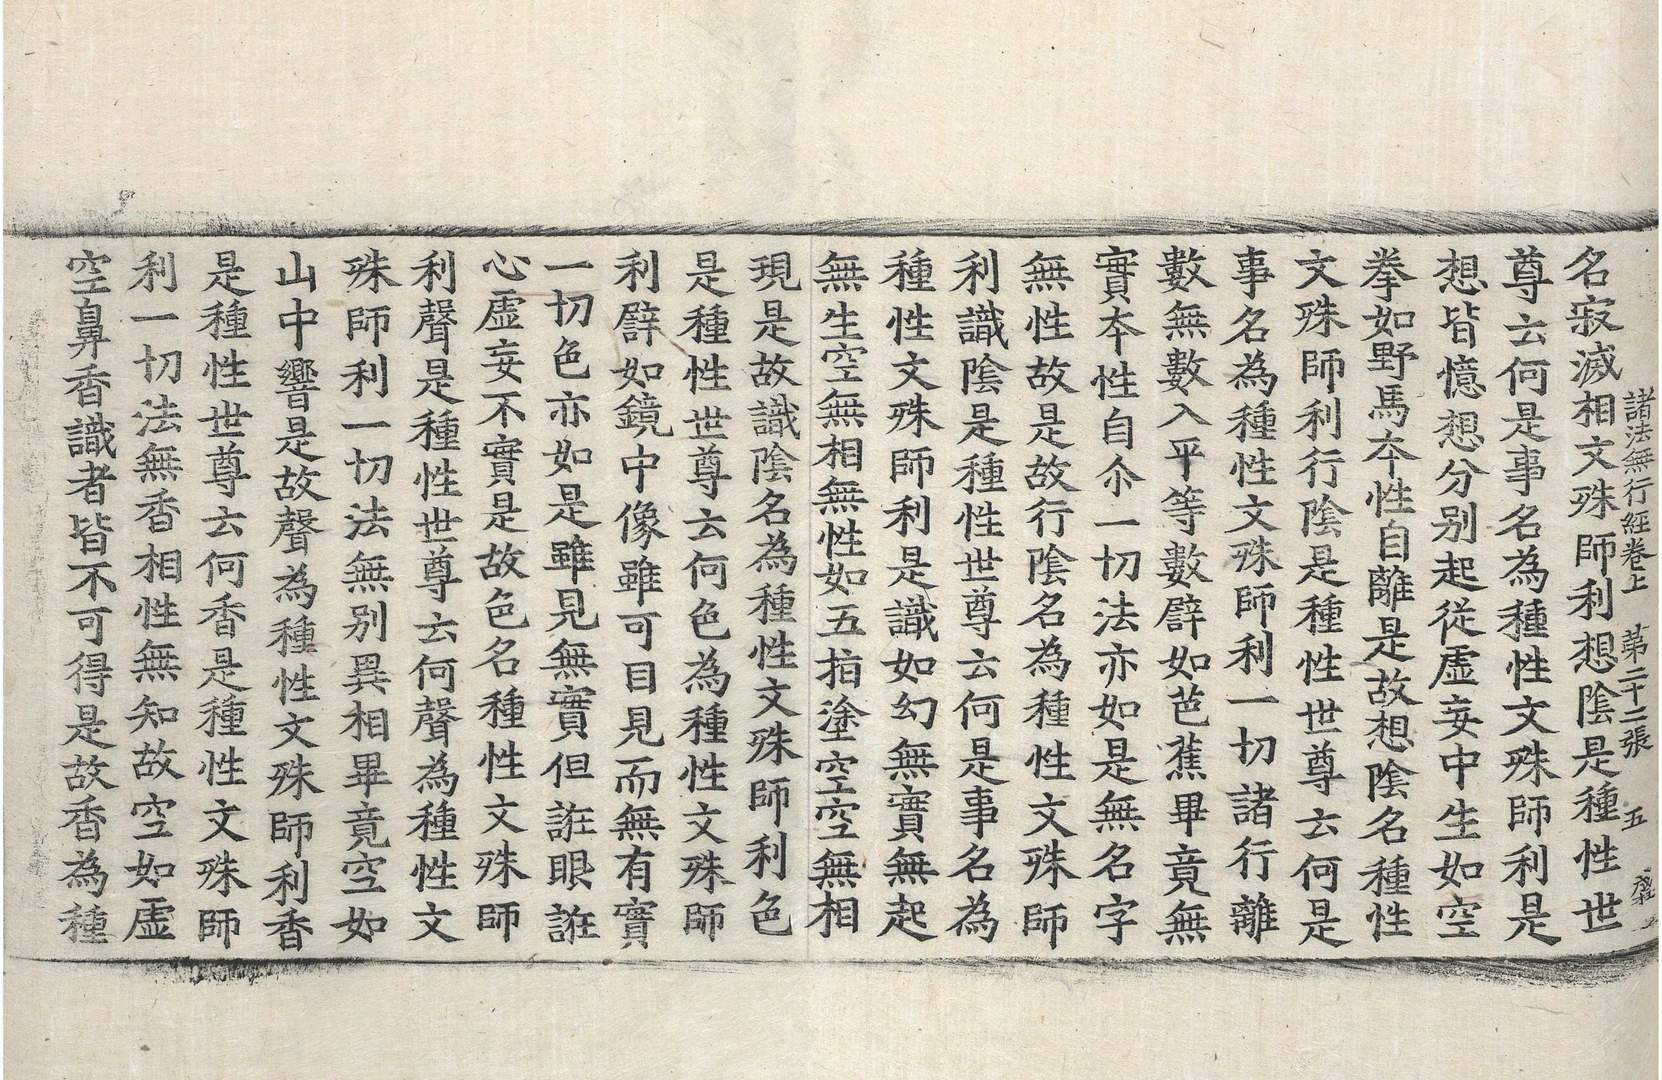 諸法無行經卷上 第二十二張 五
名寂滅相文殊師利想陰是種性世
尊云何是事名為種性文殊師利是
想皆憶想分別起從虛妄中生如空
拳如野馬夲性自離是故想陰名種性
文殊師利行陰是種性世尊云何是
事名為種性文殊師利一切諸行離
數無數入平等數譬如芭蕉畢竟無
實夲性自尒一切法亦如是無名字
無性故是故行陰名為種性文殊師
利識陰是種性世尊云何是事名為
種性文殊師利是識如幻無實無起
無生空無相無性如五指塗空空無相
現是故識陰名為種性文殊師利色
是種性世尊云何色為種性文殊師
利譬如鏡中像雖可目見而無有實
一切色亦如是雖見無實但誑眼誑
心虛妄不實是故色名種性文殊師
利聲是種性世尊云何聲為種性文
殊師利一切法無別異相畢竟空如
山中響是故聲為種性文殊師利香
是種性世尊云何香是種性文殊師
利一切法無香相性無知故空如虛
空鼻香識者皆不可得是故香為種